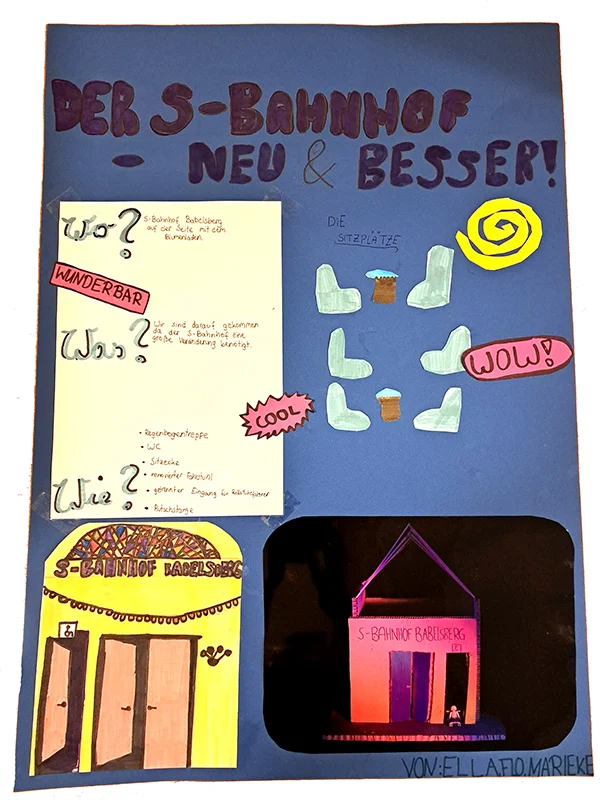 DER S-BAHNHOF
- NEU & BESSER!
Wo?
S-Bahnhof Babelsberg
auf der Seite mit dem
Blumenladen
WUNDERBAR
Was?
Wir sind darauf gekommen
da der S-Bahnhof eine
große Veränderung benötigt.
COOL
Wie?
• Regenbogentreppe
• WC
• Sitzecke
• renovierter Fahrstuhl
• getrennter Eingang für Rollstuhlfahrer
• Rutschstange
DIE
SITZPLÄTZE
WOW!
S-BAHNHOF BABELSBERG
S-BAHNHOF BABELSBERG
VON: ELLA, FIO, MARIEKE